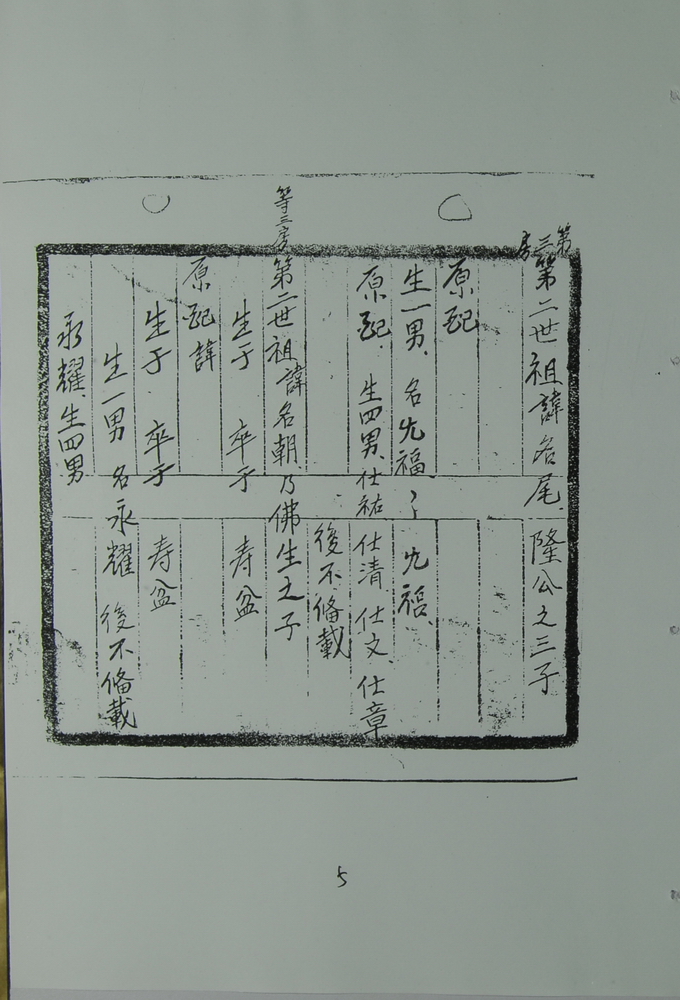 第三房
第二世祖諱名尾 隆公之三子
原配
生一男、名尤福、 尤福、
原配、生四男、仕祐 仕清、仕文、仕章
後不俻載
等三房
第二世祖諱名朝乃佛生之子
生于 卒于 寿盆
原配諱
生于 卒于 寿盆
生一男 名永耀 後不俻載
永耀、生四男
5